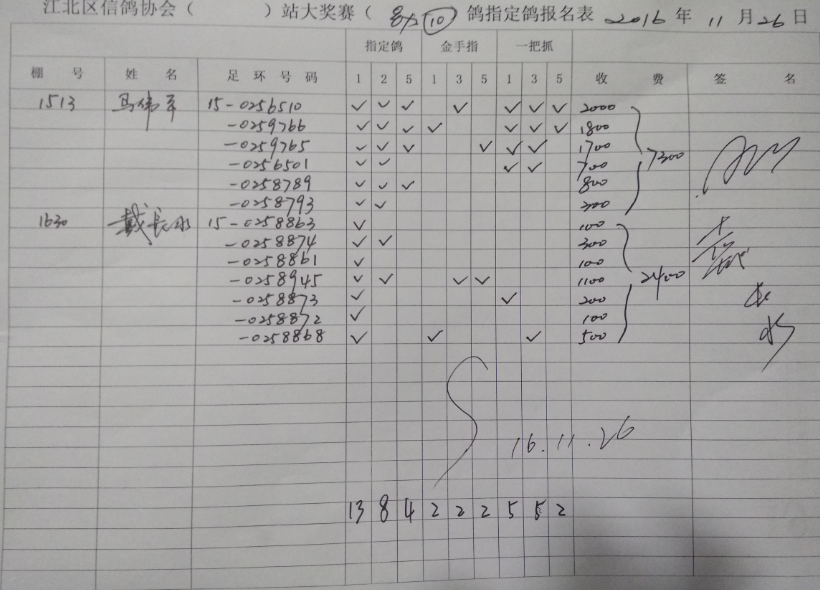 江北区信鸽协会（ ）站大奖赛（ ⑩ 鸽指定鸽报名表 2016 年 11 月 26 日
指定鸽 金手指 一把抓
棚 号 姓 名 足 环 号 码 1 2 5 1 3 5 1 3 5 收 费 签 名
1513 马伟平 15-0256510 ✓ ✓ ✓ ✓ ✓ ✓ ✓ 2000
-0259766 ✓ ✓ ✓ ✓ ✓ ✓ ✓ 1800
-0259765 ✓ ✓ ✓ ✓ ✓ ✓ 1700 7300
-0256501 ✓ ✓ ✓ ✓ 700
-0258789 ✓ ✓ ✓ 800
-0258793 ✓ ✓ 300
1630 戴长水 15-0258863 ✓ 100
-0258874 ✓ ✓ 300
-0258861 ✓ 100
-0258945 ✓ ✓ ✓ ✓ 1100 2400
-0258873 ✓ ✓ 200
-0258872 ✓ 100
-0258868 ✓ ✓ ✓ 500
16.11.26
13 8 4 2 2 2 5 5 2